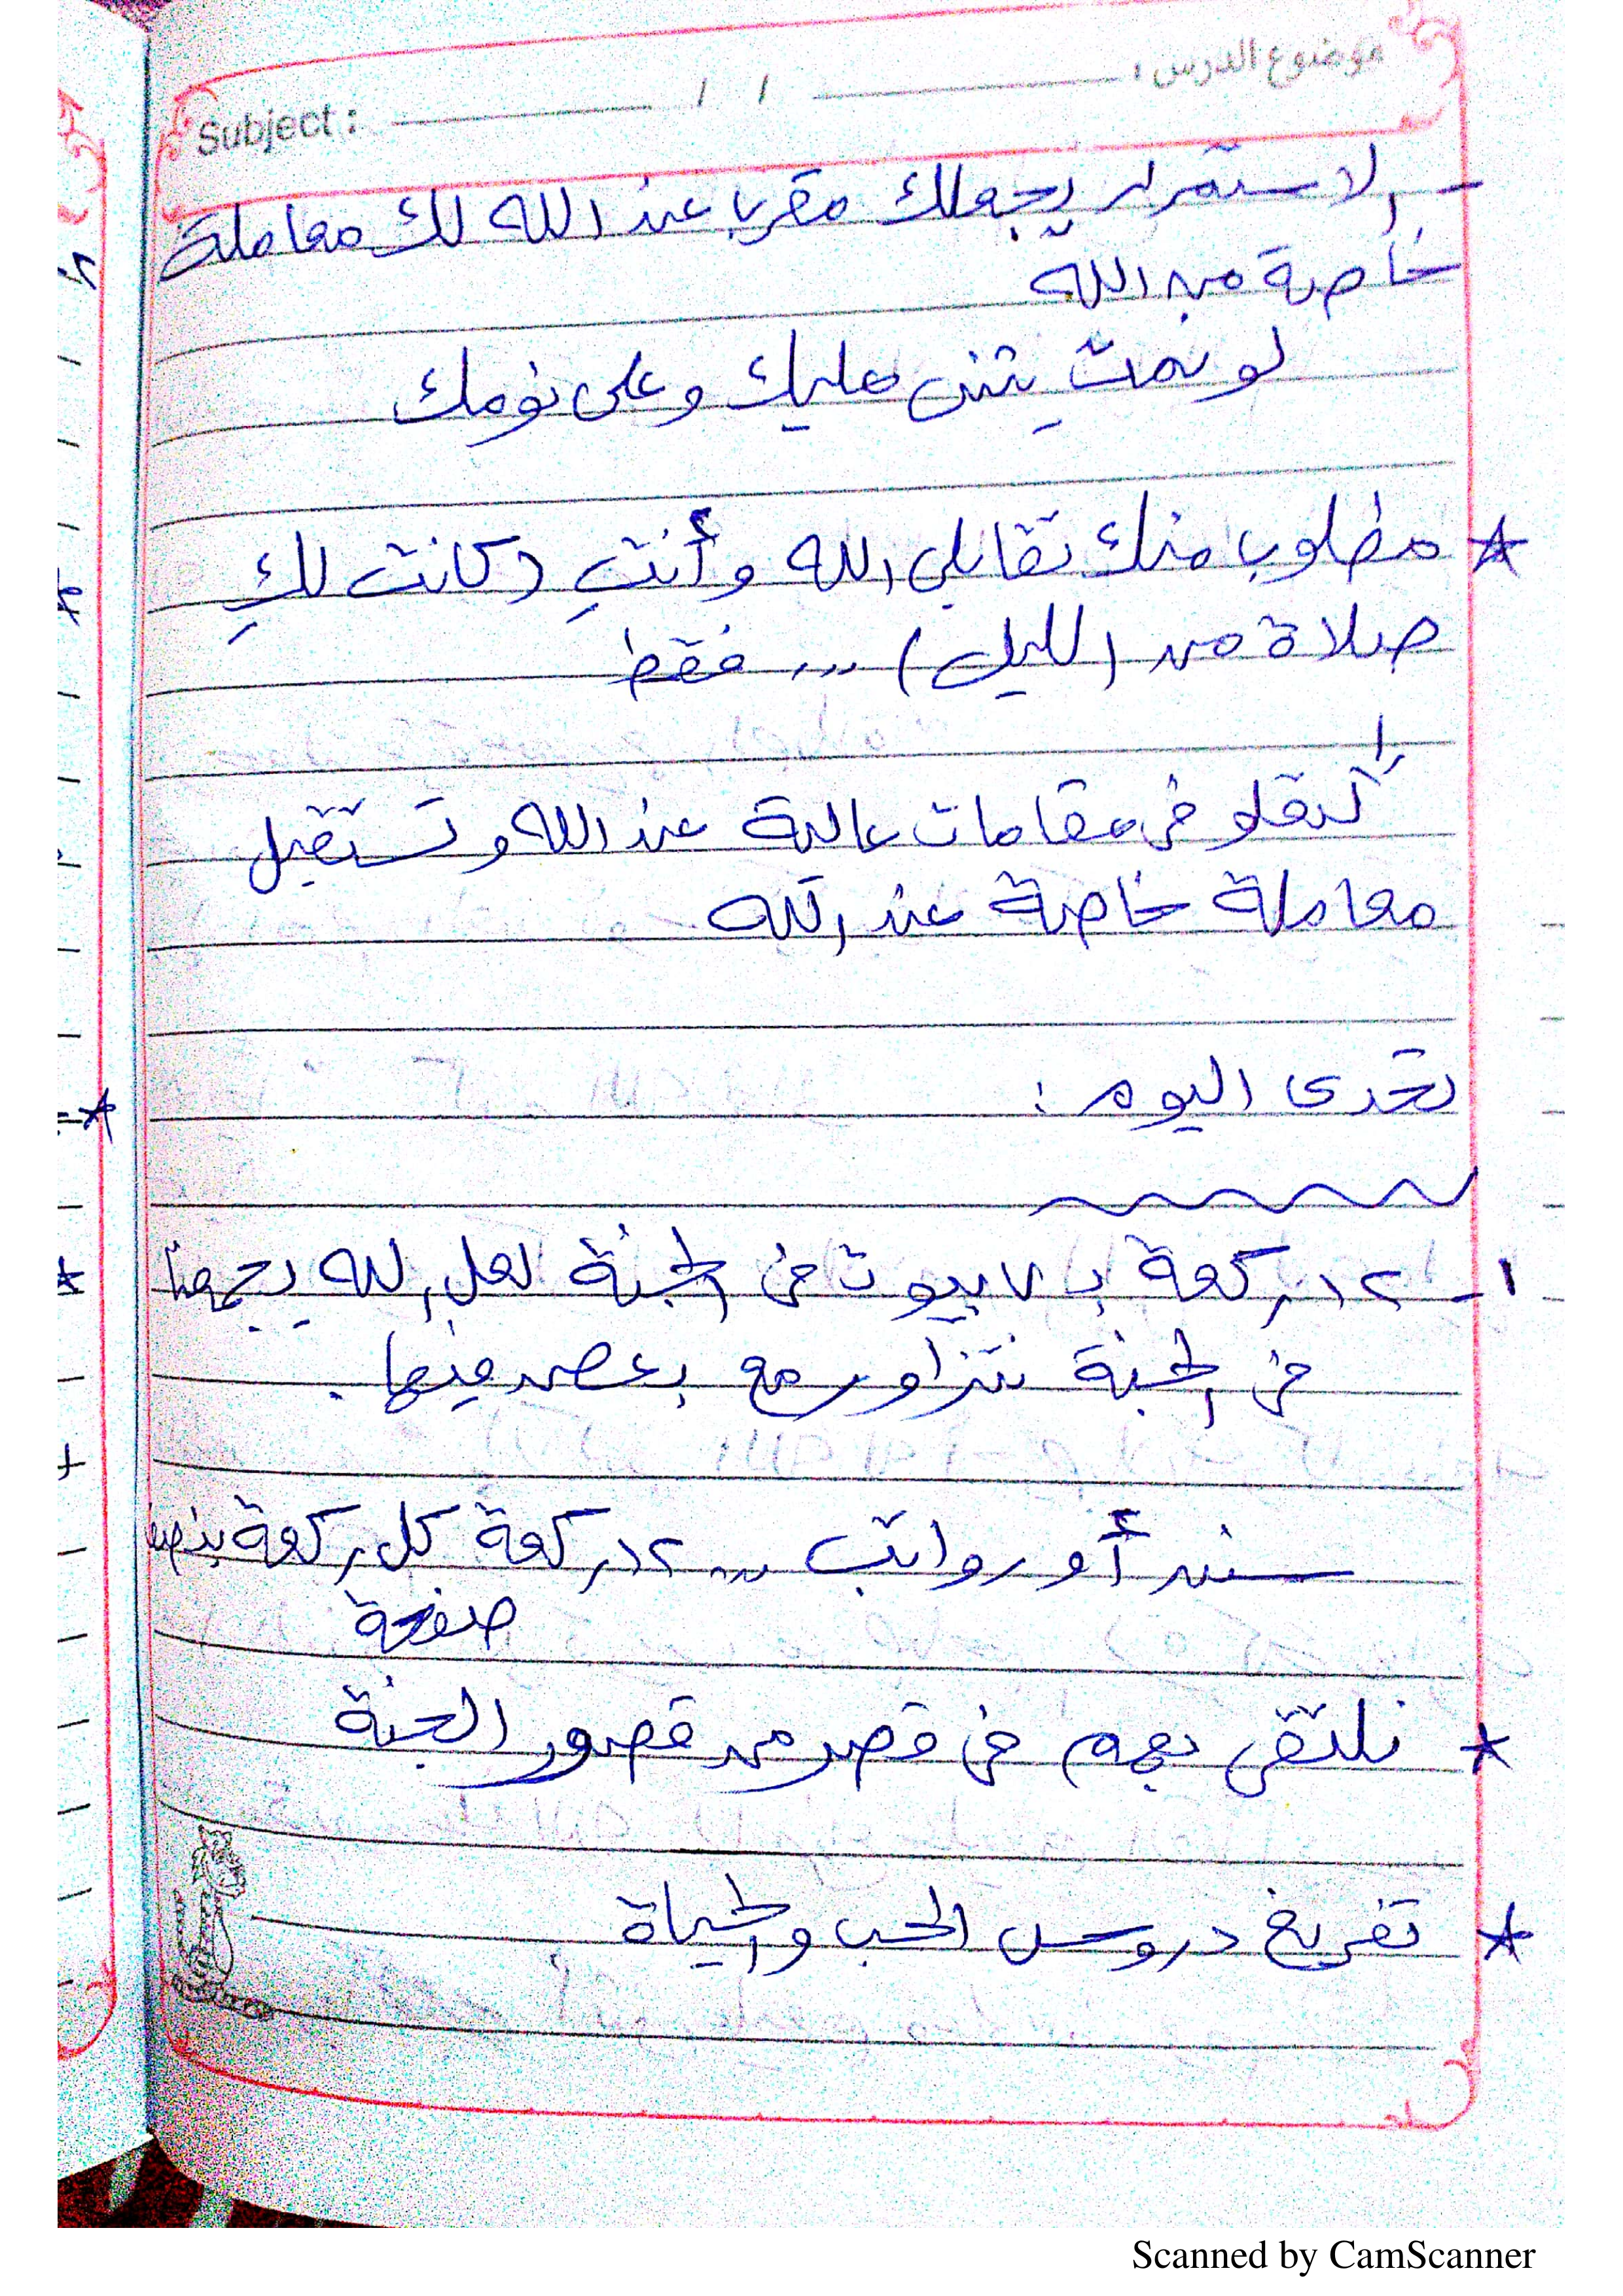 موضوع الدرس :
/ /
Subject :
- الاستمرار يجعلك مقربا عند الله لك معاملة
خاصة من الله
لو نمتِ يثنى عليك وعلى نومك
* مطلوب منك تقابلى الله وأنتِ (كانت لكِ
صلاة من الليل) ... فقط
فى مقامات عالية عند الله وتستقبل
معاملة خاصة عند الله
تحدى اليوم :
١- ١٢ ركعة بـ ٧ بيوت فى الجنة لعل الله يجمعنا
فى الجنة نتزاور مع بعض فيها .
سنن أو رواتب ... ١٢ ركعة كل ركعة بنصف
صفحة
* نلتقى بهم فى قصر من قصور الجنة
* تفريغ دروس الحب والحياة .
Scanned by CamScanner